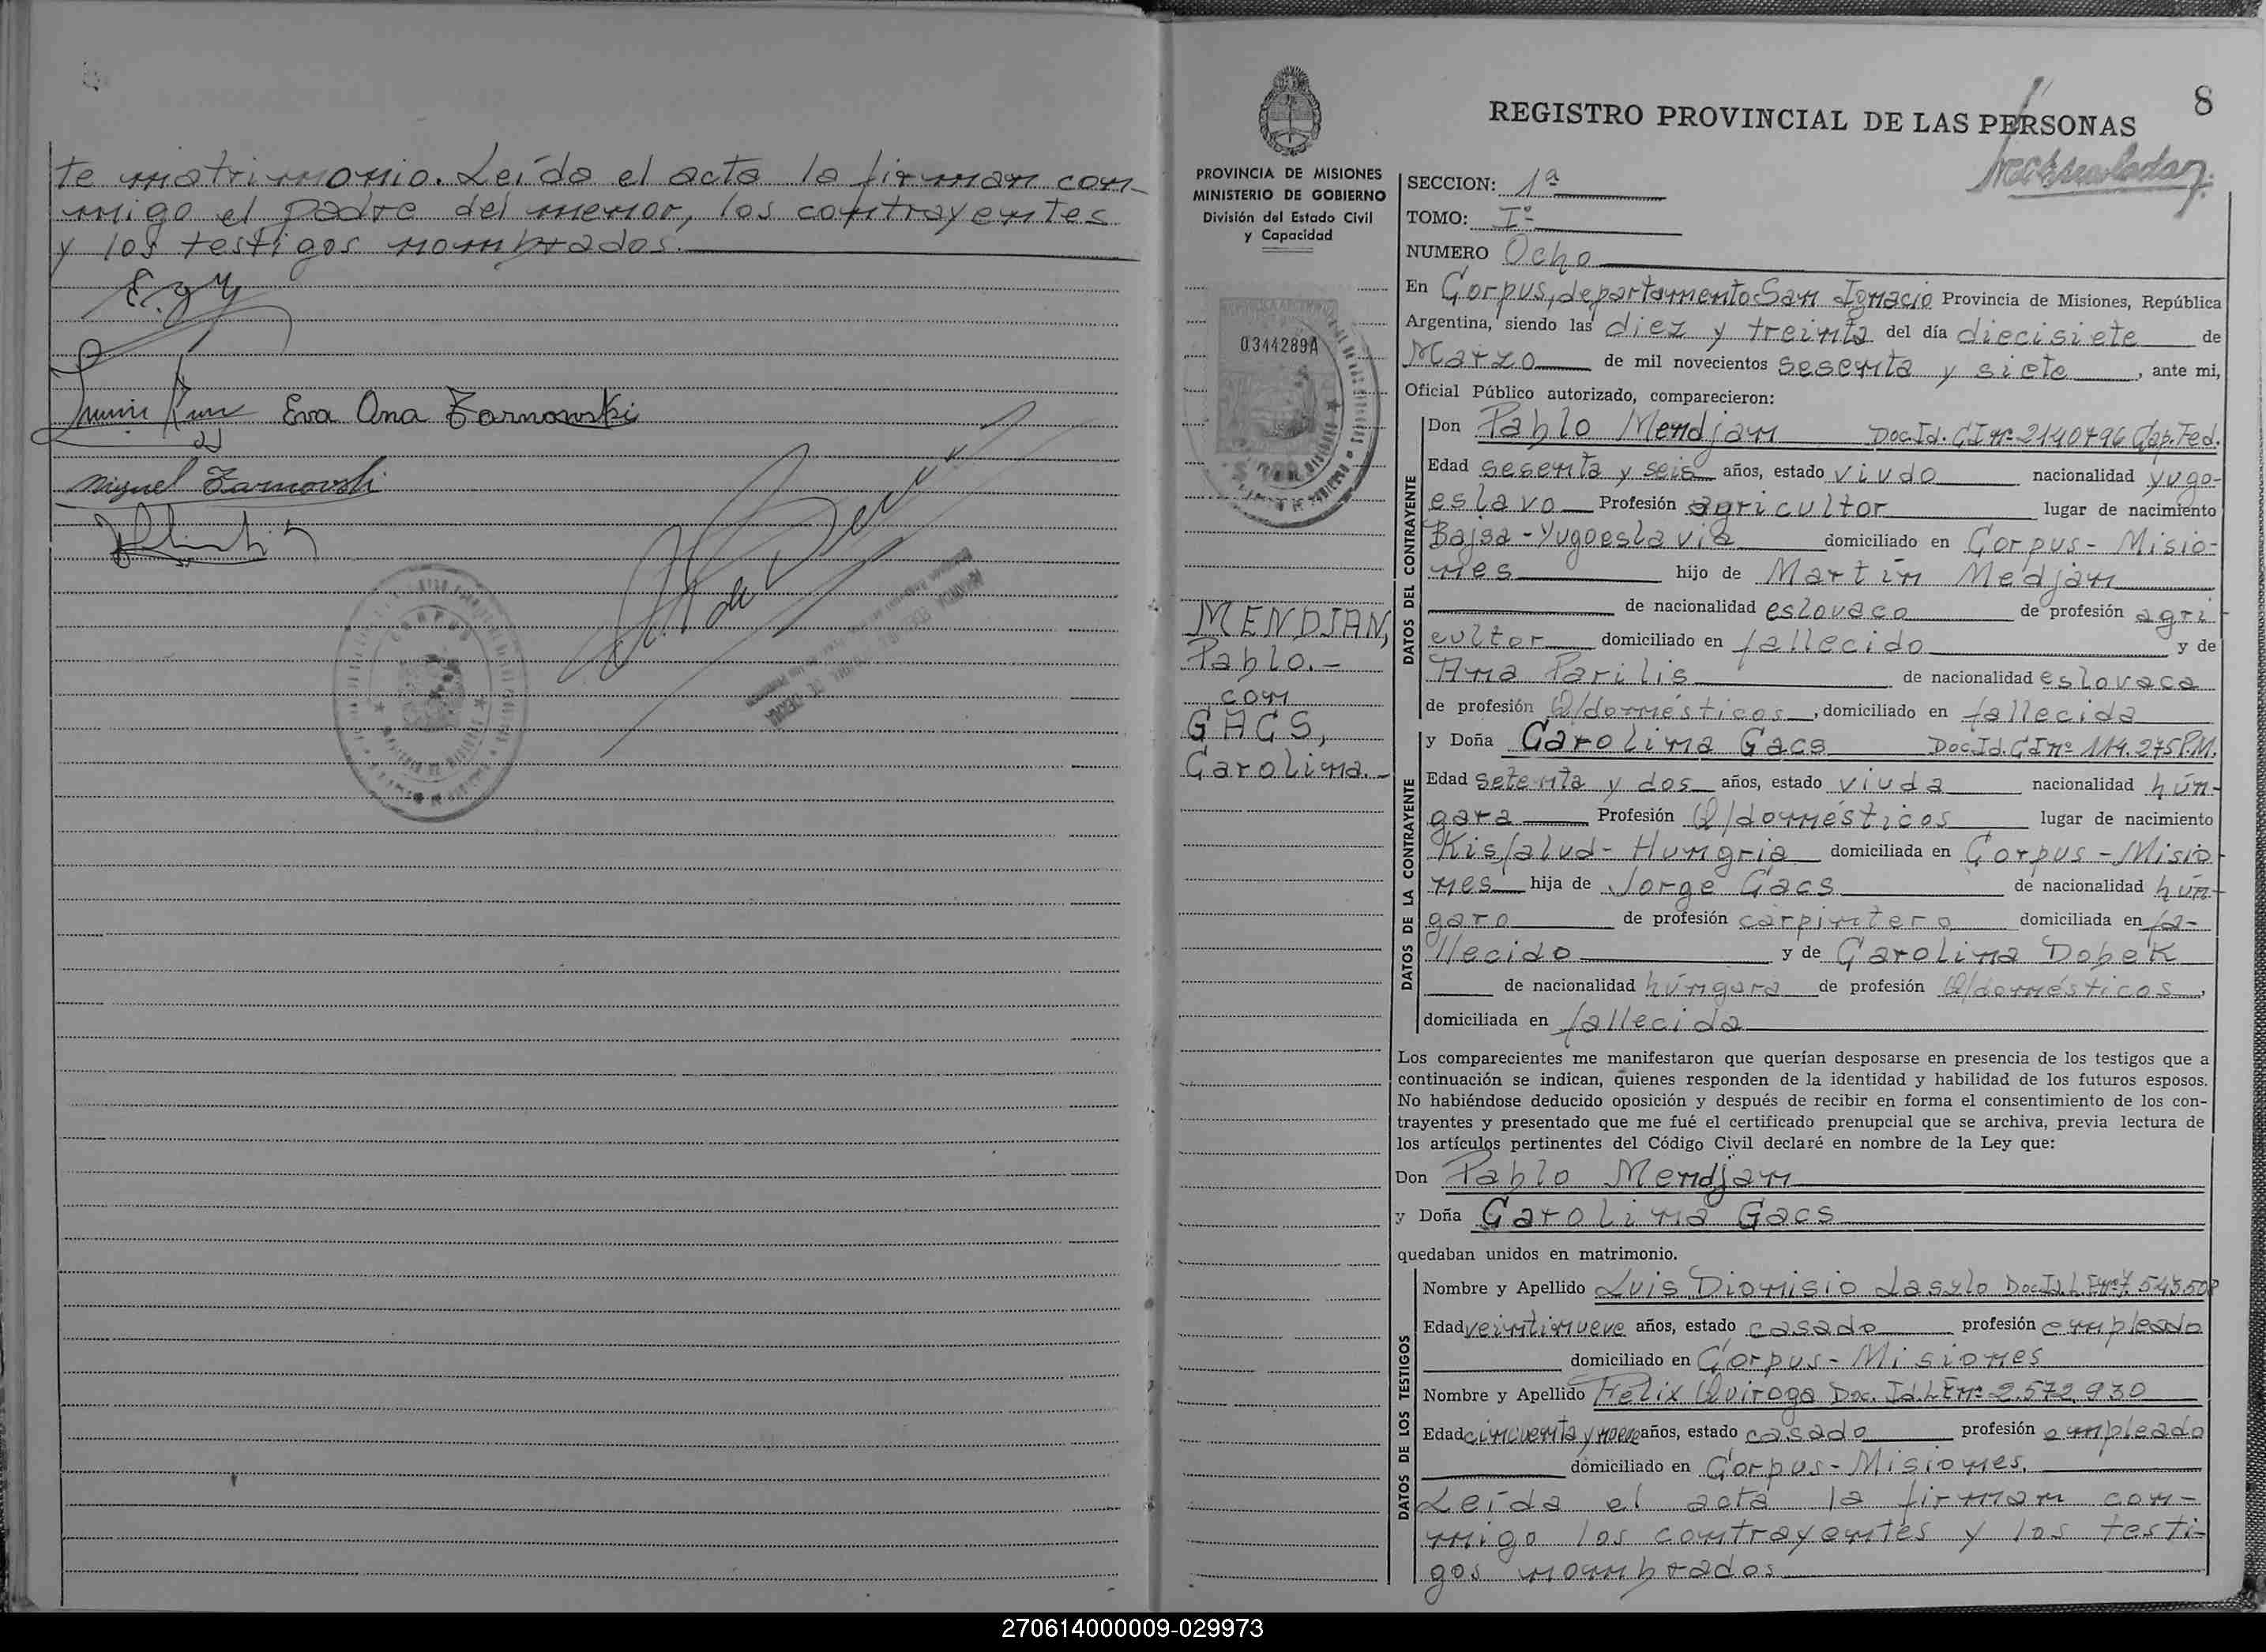 te matrimonio. Leída el acta la firman con-
migo el padre del menor, los contrayentes
y los testigos nombrados.
Eva Ana Zarnowski
Miguel Zarnovski
8
REGISTRO PROVINCIAL DE LAS PERSONAS
PROVINCIA DE MISIONES
MINISTERIO DE GOBIERNO
División del Estado Civil
y Capacidad
0344289A
MENDJAN,
Pablo.-
con
GACS,
Carolina.-
SECCION: 1ª
TOMO: Iº
NUMERO Ocho
En Corpus, departamento San Ignacio Provincia de Misiones, República
Argentina, siendo las diez y treinta del día diecisiete de
Marzo de mil novecientos sesenta y siete, ante mi,
Oficial Público autorizado, comparecieron:
DATOS DEL CONTRAYENTE
Don Pablo Mendjan Doc.Id. CI nº 2140796 Cap. Fed.
Edad sesenta y seis años, estado viudo nacionalidad yugo-
eslavo Profesión agricultor lugar de nacimiento
Bajsa - Yugoeslavia domiciliado en Corpus - Misio-
nes hijo de Martín Medján
de nacionalidad eslovaco de profesión agri-
cultor domiciliado en fallecido y de
Ana Parilis de nacionalidad eslovaca
de profesión Q/domésticos, domiciliado en fallecida
DATOS DE LA CONTRAYENTE
y Doña Carolina Gacs Doc.Id. CI nº 114.275 P.M.
Edad setenta y dos años, estado viuda nacionalidad hún-
gara Profesión Q/domésticos lugar de nacimiento
Kisfalud - Hungria domiciliada en Corpus - Misio-
nes hija de Jorge Gacs de nacionalidad hún-
garo de profesión carpintero domiciliada en fa-
llecido y de Carolina Dobek
de nacionalidad húngara de profesión Q/domésticos,
domiciliada en fallecida
Los comparecientes me manifestaron que querían desposarse en presencia de los testigos que a
continuación se indican, quienes responden de la identidad y habilidad de los futuros esposos.
No habiéndose deducido oposición y después de recibir en forma el consentimiento de los con-
trayentes y presentado que me fué el certificado prenupcial que se archiva, previa lectura de
los artículos pertinentes del Código Civil declaré en nombre de la Ley que:
Don Pablo Mendjan
y Doña Carolina Gacs
quedaban unidos en matrimonio.
DATOS DE LOS TESTIGOS
Nombre y Apellido Luis Dionisio Lasylo Doc.Id. L.E. nº 7.543.508
Edad veintinueve años, estado casado profesión empleado
domiciliado en Corpus - Misiones
Nombre y Apellido Felix Quiroga Doc. Id. L.E. nº 2.572.930
Edad cincuenta y nueve años, estado casado profesión empleado
domiciliado en Corpus - Misiones.
Leída el acta la firman con-
migo los contrayentes y los testi-
gos nombrados
270614000009-029973